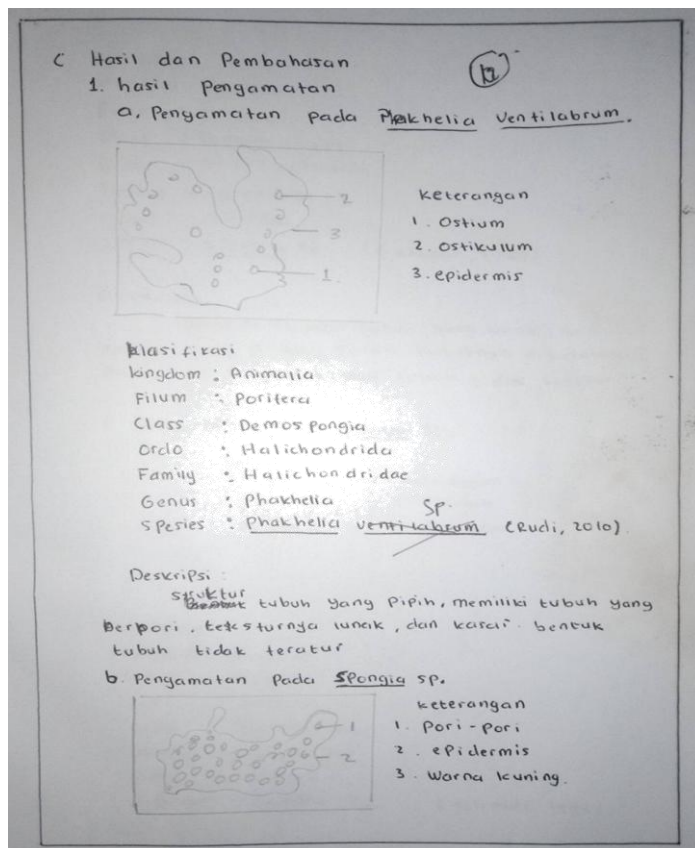 C Hasil dan Pembahasan
12
1. hasil Pengamatan
a. Pengamatan pada Phakhelia Ventilabrum.
2
3
1.
Keterangan
1. Ostium
2. Ostikulum
3. epidermis
Klasifikasi
kingdom : Animalia
Filum : Porifera
Class : Demospongia
Ordo : Halichondrida
Family : Halichondridae
Genus : Phakhelia
Sp.
Spesies : Phakhelia ventilabrum (Rudi, 2010)
Deskripsi :
struktur
tubuh yang pipih, memiliki tubuh yang
berpori. teksturnya lunak, dan kasar. bentuk
tubuh tidak teratur
b. Pengamatan Pada Spongia sp.
1
2
keterangan
1. Pori-pori
2. epidermis
3. Warna kuning.